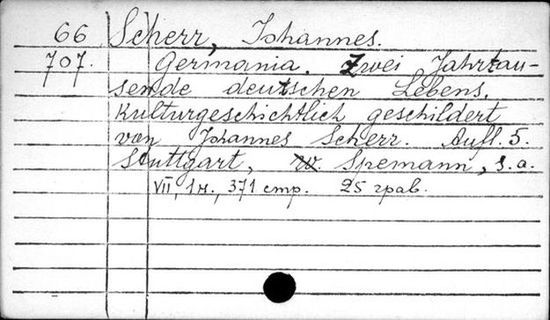 66 Scherr, Johannes.
707. Germania. Zwei Jahrtau-
sende deutschen Lebens,
Kulturgeschichtlich geschildert
von Johannes Scherr. Aufl. 5.
Stuttgart, W. Spemann, s.a.
VII, 1н., 371 стр. 25 грав.